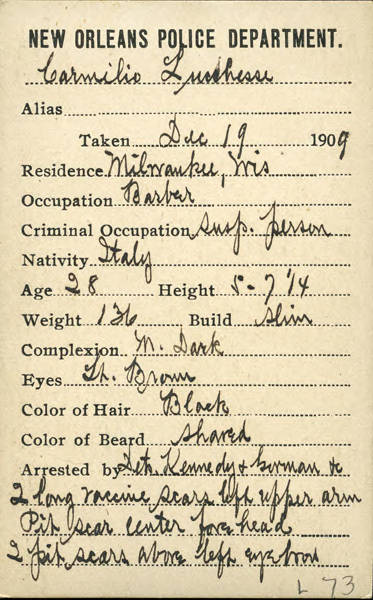 NEW ORLEANS POLICE DEPARTMENT.
Carmilio Lucchesse
Alias
Taken Dec 19 1909
Residence Milwaukee, Wis
Occupation Barber
Criminal Occupation Susp. person
Nativity Italy
Age 28 Height 5-7 1/4
Weight 136 Build Slim
Complexion M. Dark
Eyes Lt. Brown
Color of Hair Black
Color of Beard Shaved
Arrested by Dets. Kennedy & Gorman &c
2 long vaccine scars left upper arm
Pit scar center forehead
2 pit scars above left eyebrow
L 73